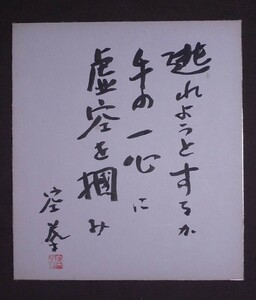 逃れようとするか
手の一心に
虚空を掴み
空拳